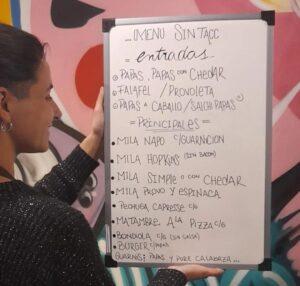 ... MENU SIN TACC
= entradas =
PAPAS, PAPAS CON CHEDAR
FALAFEL / PROVOLETA
PAPAS A CABALLO / SALCHI PAPAS
= PRINCIPALES =
• MILA NAPO C/GUARNICION
• MILA HOPKINS (SIN BACON)
• MILA SIMPLE O CON CHEDAR
• MILA PROVO Y ESPINACA
• PECHUGA CAPRESSE C/G
• MATAMBRE A LA PIZZA C/G
• BONDIOLA C/G (SIN SALSA)
• BURGER C/PAPAS
GUARNIS: PAPAS Y PURE CALABAZA...